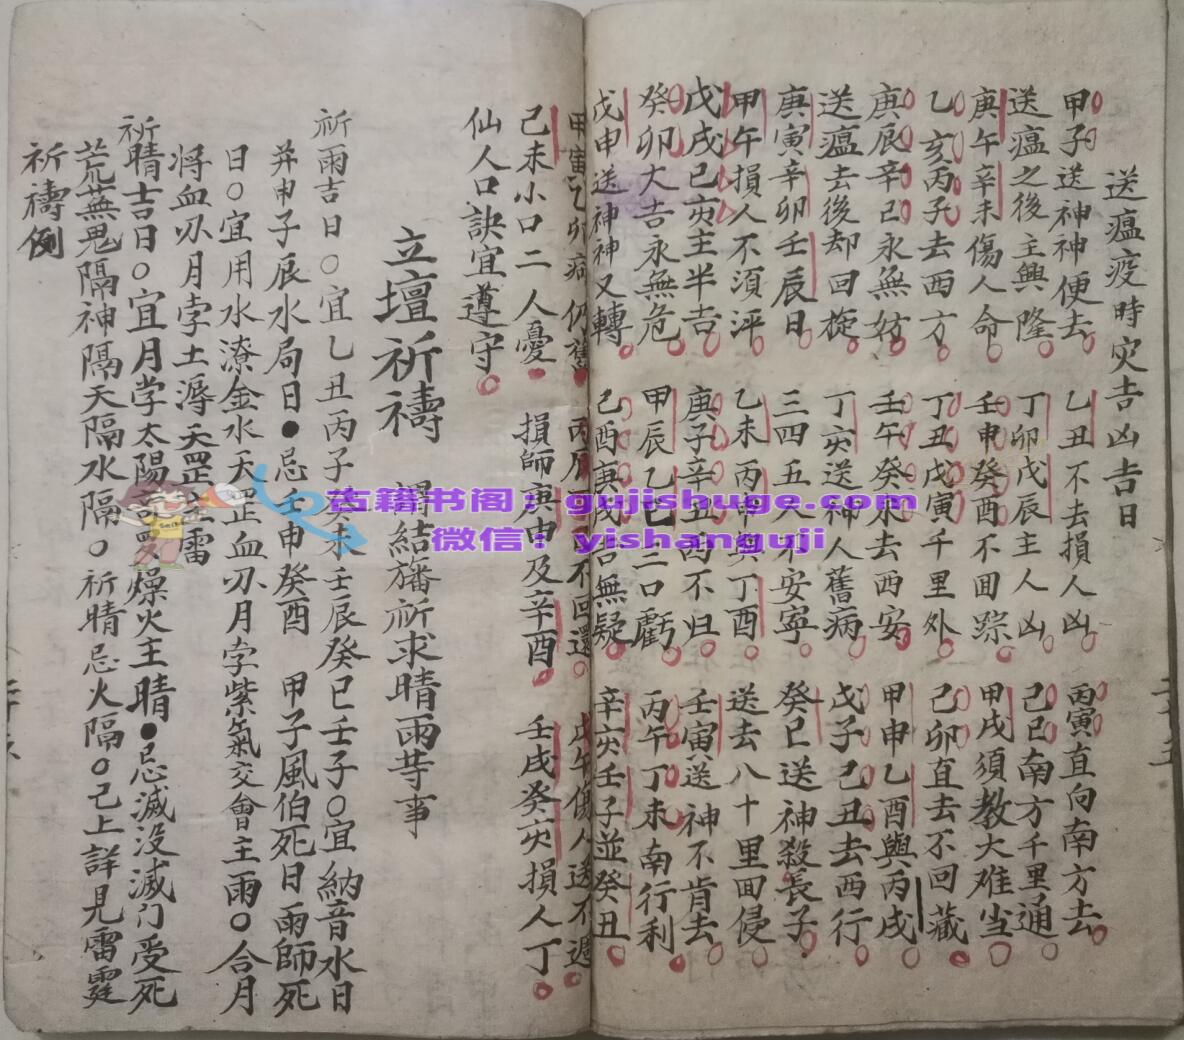 送瘟疫時灾吉凶吉日
甲子送神神便去 乙丑不去損人凶 丙寅直向南方去
送瘟之後主興隆 丁卯戊辰主人凶 己巳南方千里通
庚午辛未傷人命 壬申癸酉不回踪 甲戌須教大难当
乙亥丙子去西方 丁丑戊寅千里外 己卯直去不回藏
庚辰辛巳永無妨 壬午癸未去西安 甲申乙酉與丙戌
送瘟去後却回旋 丁亥送神人舊病 戊子己丑去西行
庚寅辛卯壬辰日 三四五人不安寧 癸巳送神殺長子
甲午損人不須評 乙未丙申與丁酉 送去八十里回侵
戊戌己亥主半吉 庚子辛丑西不归 壬寅送神不肯去
癸卯大吉永無危 甲辰乙巳三口虧 丙午丁未南行利
戊申送神神又轉 己酉庚戌吉無疑 辛亥壬子並癸丑
甲寅乙卯病仍舊 丙辰 不回還 戊午傷人送不還
己未小口二人憂 損師庚申及辛酉 壬戌癸亥損人丁
仙人口訣宜遵守
立壇祈禱 謂結旛祈求晴雨等事
祈雨吉日○宜乙丑丙子癸未壬辰癸巳壬子○宜納音水日
并申子辰水局日●忌壬申癸酉 甲子風伯死日雨師死
日○宜用水潦金水天罡血刃月孛紫氣交會主雨○合月
将血刃月孛土溽天罡主雷
祈晴吉日○宜月孛太陽 燥火主晴●忌滅没滅门受死
荒蕪鬼隔神隔天隔水隔○祈晴忌火隔○已上詳見雷霆
祈禱例
古籍书阁：gujishuge.com
微信：yishanguji